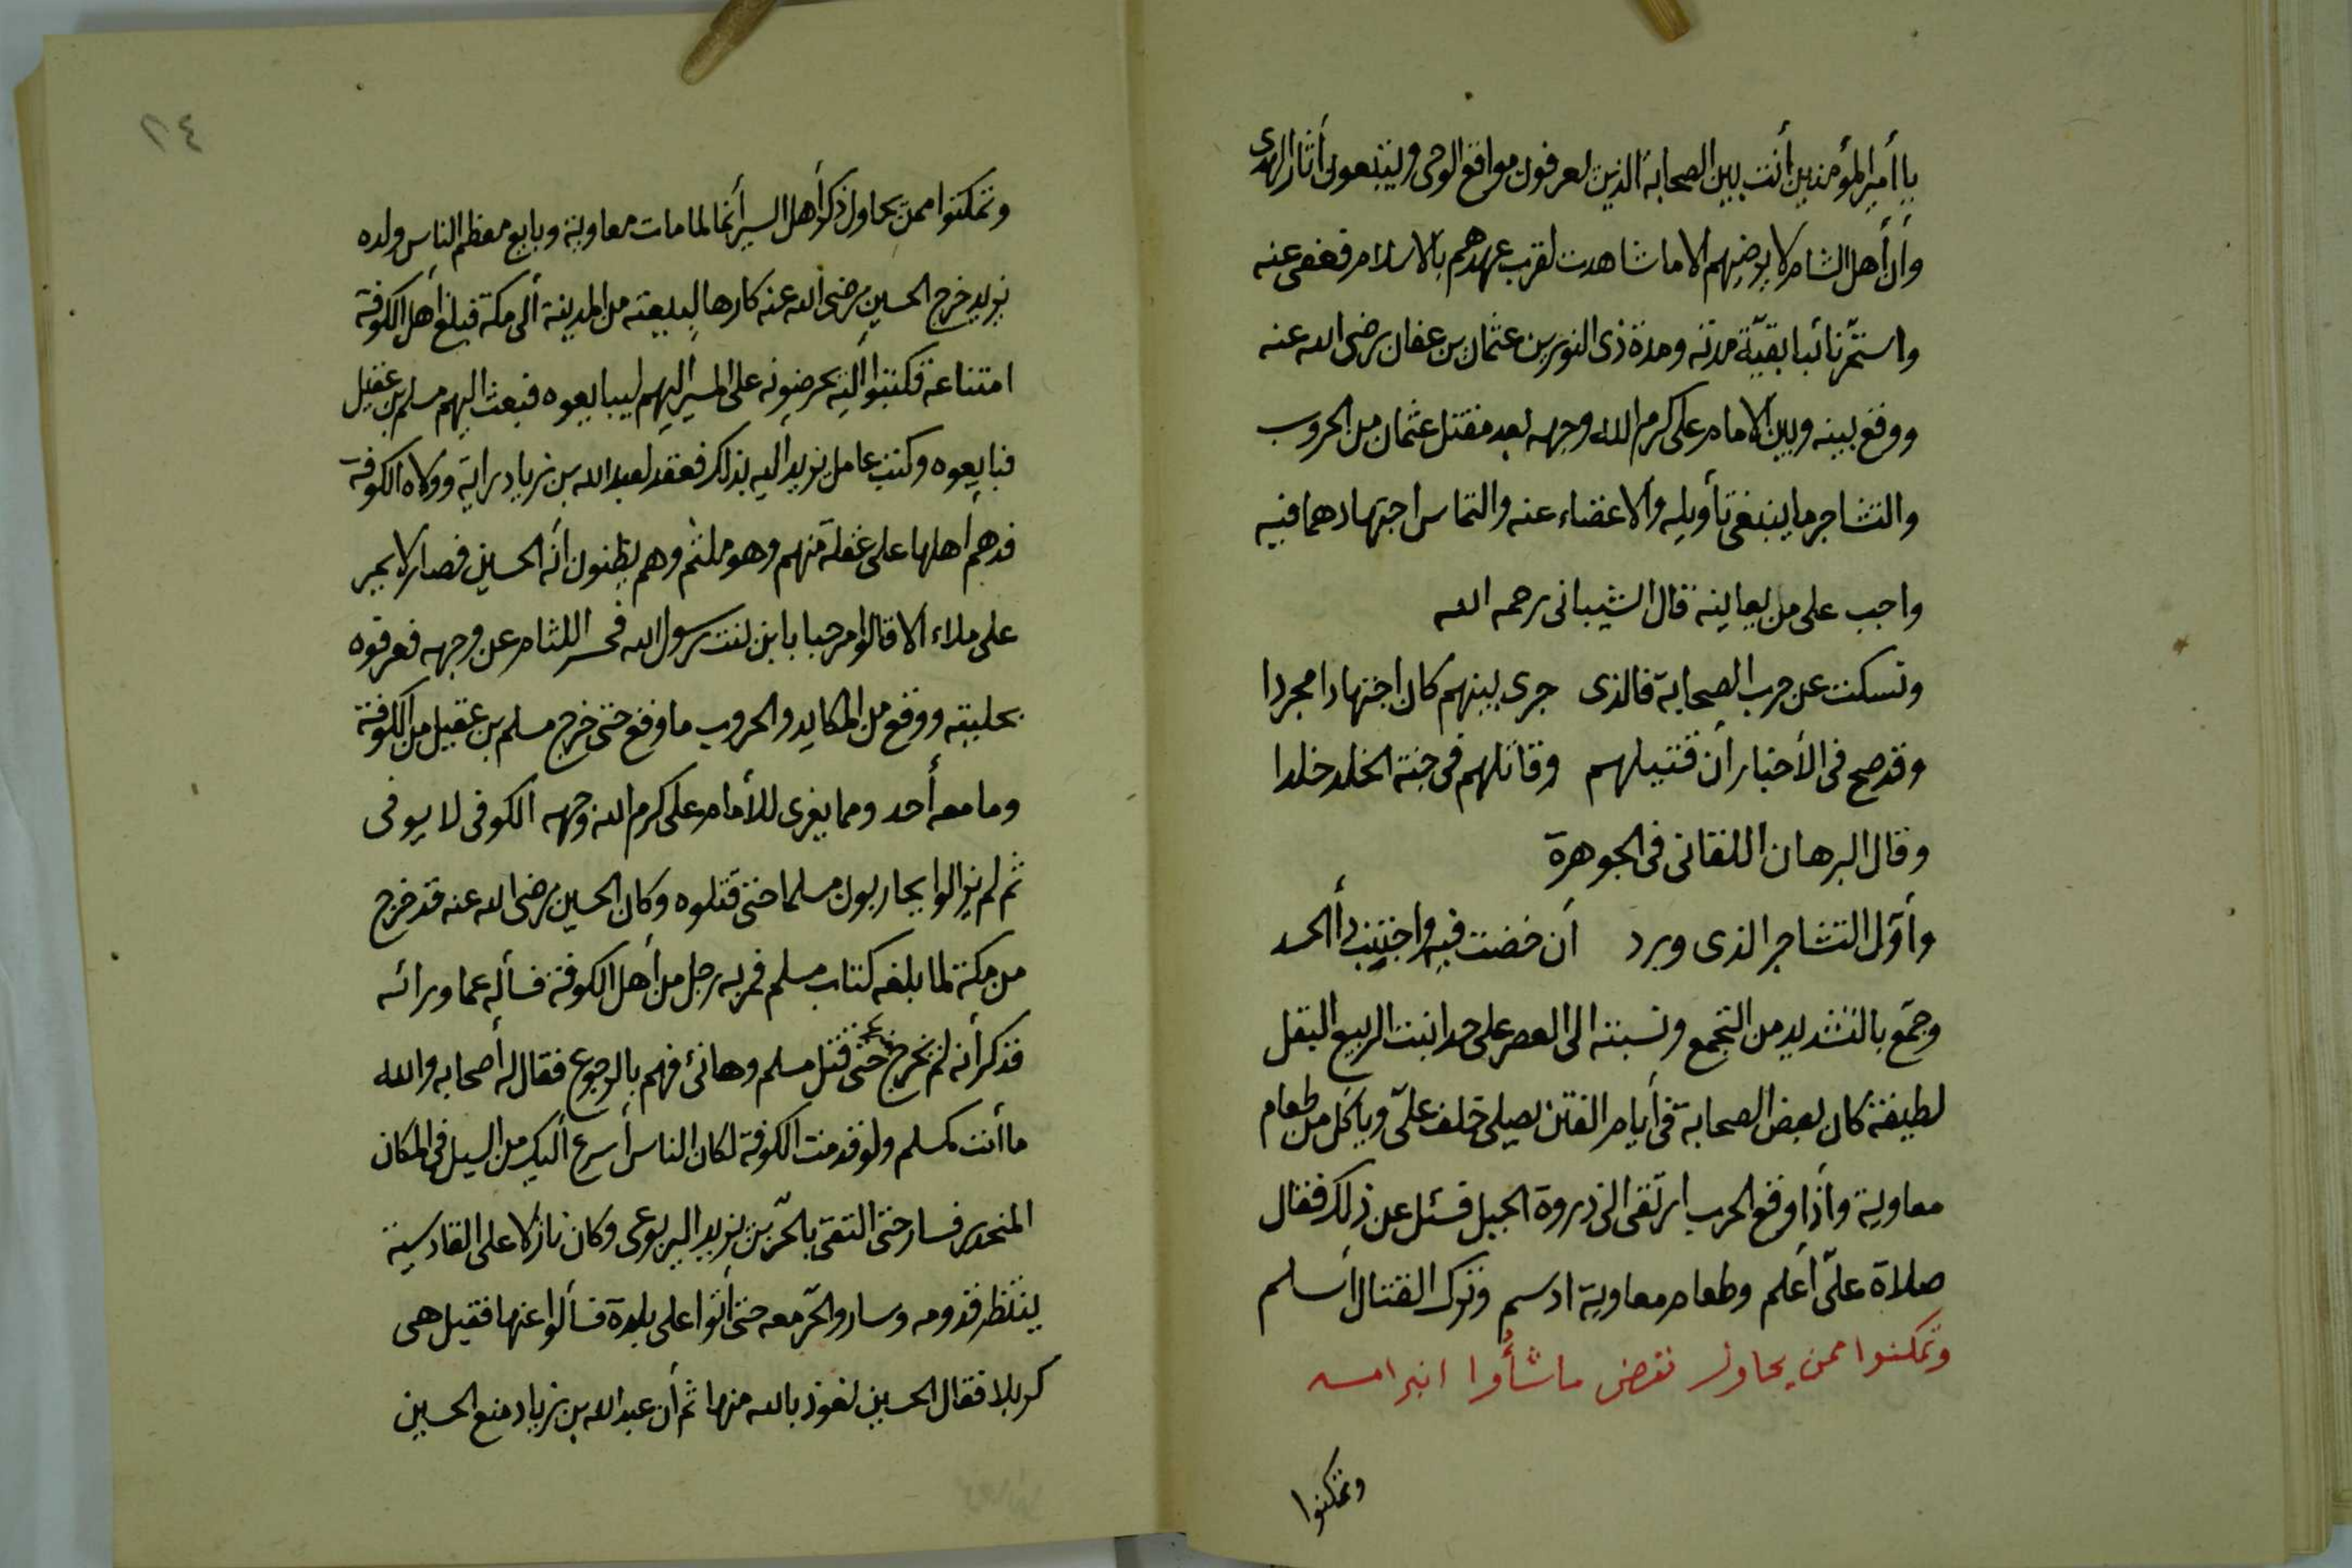 يا أمير المؤمنين أنت بين الصحابة الذين يعرفون مواقع الوحى ويتبعون أثار الهدى
وأن أهل الشام لا يرضيهم الا ما شاهدت لقرب عهدهم بالاسلام فعفى عنه
واستمّر نائبا بقيّة مدته ومدة ذى النورين عثمان بن عفان رضى الله عنه
ووقع بينه وبين الامام على كرم الله وجهه بعد مقتل عثمان من الحروب
والتشاجر ما ينبغى تأويله والاغضاء عنه والتماس اجتهادهما فيه
واجب على من يعاينه قال الشيبانى رحمه الله
ونسكت عن حرب الصحابة فالذى جرى بينهم كان اجتهادا مجردا
وقد صح فى الأخبار أن قتيلهم وقاتلهم فى جنة الخلد خلدا
وقال البرهان اللقانى فى الجوهرة
وأوّل التشاجر الذى ورد أن خضت فيه واجتنب دأ الحسد
وجمّع بالتشديد من التجمع ونسبته الى العصر على حد انبت الربيع البقل
لطيفة كان بعض الصحابة فى أيام الفتن يصلى خلف علىّ ويأكل من طعام
معاوية وأذا وقع الحرب ارتقى الى ذروة الجبل فسئل عن ذلك فقال
صلاة علىّ أعلم وطعام معاوية ادسم وترك القتال أسلم
وتمكنوا ممن يحاول نقض ما شأوا ابرامه
وتمكنوا
٢٤
وتمكنوا ممن يحاول ذكر أهل السير أنما لما مات معاوية وبايع معظم الناس ولده
يزيد خرج الحسين رضى الله عنه كارها لبيعته من المدينة ألى مكة فبلغ أهل الكوفة
امتناعه فكتبوا أليه يحرضونه على المسير اليهم ليبايعوه فبعث اليهم مسلم بن عقيل
فبايعوه وكتب عامل يزيد اليه بذلك فعقد لعبد الله بن زياد راية وولاه الكوفة
فدهم أهلها على غفلة منهم وهو ملثم وهم يظنون أنه الحسين فصار لا يمر
على ملاء الا قالوا مرحبا بابن بنت رسول الله فحسر اللثام عن وجهه فعرفوه
بحليته ووقع من المكايد والحروب ما وقع حتى خرج مسلم بن عقيل من الكوفة
وما معه أحد ومما يعزى للأمام على كرم الله وجهه الكوفى لا يوفى
ثم لم يزالوا يحاربون مسلما حتى قتلوه وكان الحسين رضى الله عنه قد خرج
من مكة لما بلغه كتاب مسلم فمر به رجل من أهل الكوفة فسأله عما ورائه
فذكر أنه لم يخرج حتى قتل مسلم وهانئ فهم بالرجوع فقال له أصحابه والله
ما أنت كمسلم ولو قدمت الكوفة لكان الناس أسرع أليك من السيل فى المكان
المنحدر فسار حتى التقى بالحرّ بن يزيد اليربوعى وكان نازلا على القادسية
ينتظر قدومه وسار والحرّ معه حتى أتوا على بلدة فسألوا عنها فقيل هى
كربلا فقال الحسين نعوذ بالله منها ثم أن عبد الله بن زياد منع الحسين